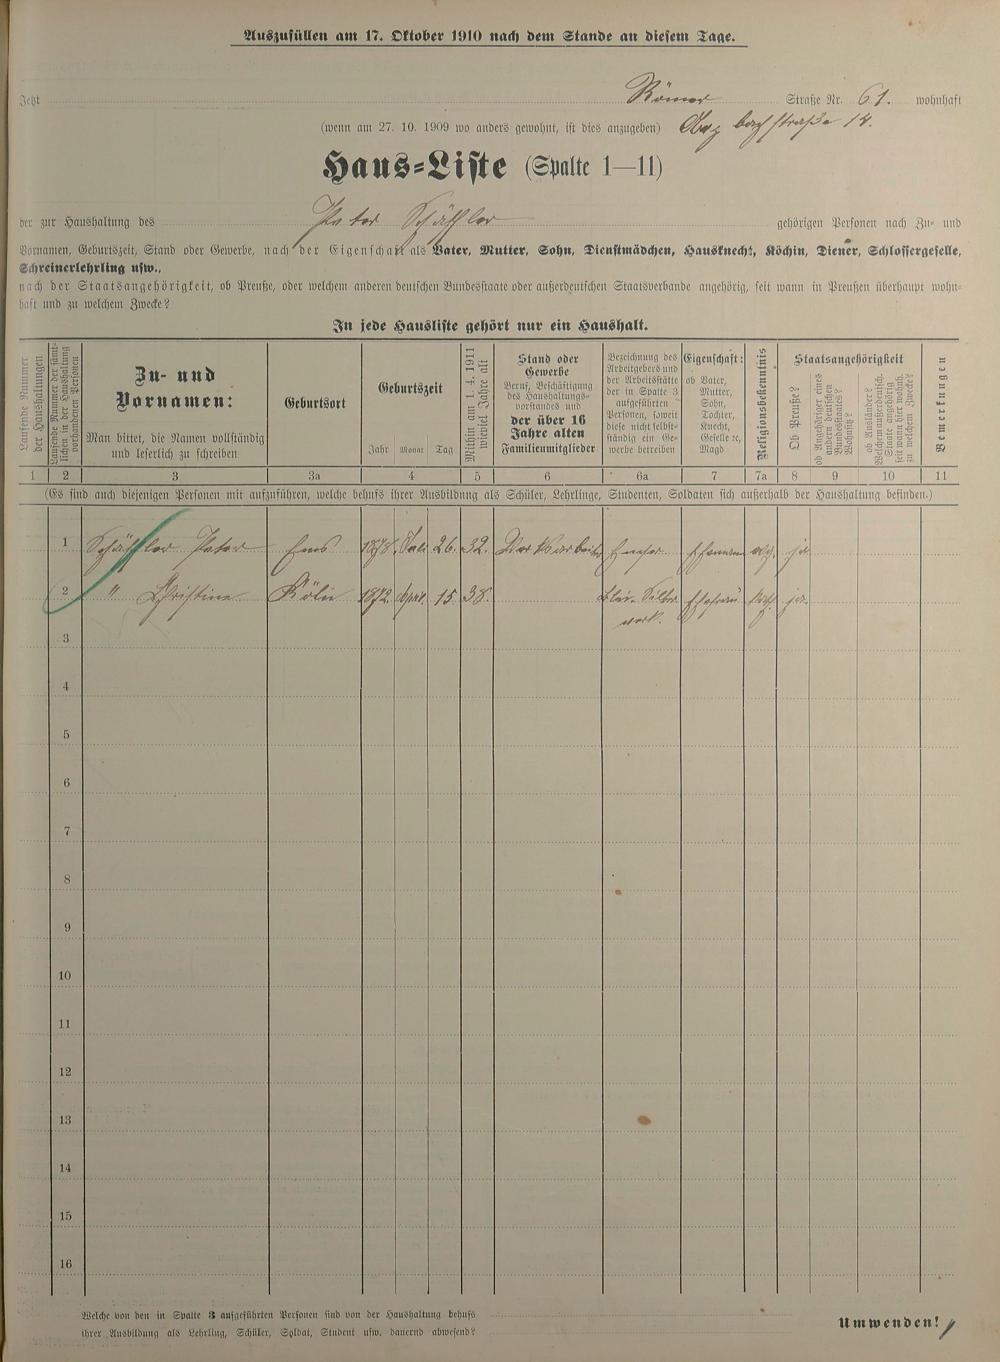 Auszufüllen am 17. Oktober 1910 nach dem Stande an diesem Tage.
Jetzt Römer Straße Nr. 61. wohnhaft
(wenn am 27. 10. 1909 wo anders gewohnt, ist dies anzugeben) bachstraße 14.
Haus-Liste (Spalte 1—11)
der zur Haushaltung des Peter Schäffler gehörigen Personen nach Zu- und
Vornamen, Geburtszeit, Stand oder Gewerbe, nach der Eigenschaft als Vater, Mutter, Sohn, Dienstmädchen, Hausknecht, Köchin, Diener, Schlossergeselle,
Schreinerlehrling usw.,
nach der Staatsangehörigkeit, ob Preuße, oder welchem anderen deutschen Bundesstaate oder außerdeutschen Staatsverbande angehörig, seit wann in Preußen überhaupt wohn-
haft und zu welchem Zwecke?
In jede Hausliste gehört nur ein Haushalt.
Laufende Nummer
der Haushaltungen
Laufende Nummer der sämt-
lichen in der Haushaltung
vorhandenen Personen
Zu- und
Vornamen:
Man bittet, die Namen vollständig
und leserlich zu schreiben
Geburtsort
Geburtszeit
Jahr Monat Tag
Mithin am 1. 4. 1911
wieviel Jahre alt
Stand oder
Gewerbe
Beruf, Beschäftigung
des Haushaltungs-
vorstandes und
der über 16
Jahre alten
Familienmitglieder
Bezeichnung des
Arbeitgebers und
der Arbeitsstätte
der in Spalte 3
aufgeführten
Personen, soweit
diese nicht selbst-
ständig ein Ge-
werbe betreiben
Eigenschaft:
ob Vater,
Mutter,
Sohn,
Tochter,
Knecht,
Geselle ꝛc,
Magd
Religionsbekenntnis
Staatsangehörigkeit
Ob Preuße?
ob Angehöriger eines
andern deutschen
Bundesstaates?
Wohnsitz?
ob Ausländer?
Welchem außerdeutsch.
Staate angehörig
seit wann hier wohnh.
zu welchem Zwecke?
Bemerkungen
1 2 3 3a 4 5 6 6a 7 7a 8 9 10 11
(Es sind auch diejenigen Personen mit aufzuführen, welche behufs ihrer Ausbildung als Schüler, Lehrlinge, Studenten, Soldaten sich außerhalb der Haushaltung befinden.)
1 Schäffler Peter Ems 1878 Juli 26. 32. Werksarbeiter Emser Ehemann ja
2 " Christine Köln 1872 April 15 38. Blei- Silber Ehefrau ja.
werk.
3
4
5
6
7
8
9
10
11
12
13
14
15
16
Welche von den in Spalte 3 aufgeführten Personen sind von der Haushaltung behufs
ihrer Ausbildung als Lehrling, Schüler, Soldat, Student usw. dauernd abwesend?
Umwenden!